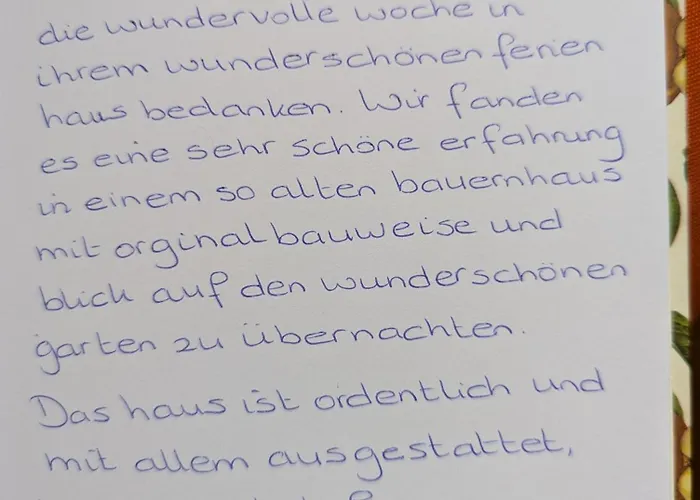 die wundervolle woche in
ihrem wunderschönen ferien
haus bedanken. Wir fanden
es eine sehr schöne erfahrung
in einem so alten bauernhaus
mit orginalbauweise und
blick auf den wunderschönen
garten zu übernachten.
Das haus ist ordentlich und
mit allem ausgestattet,